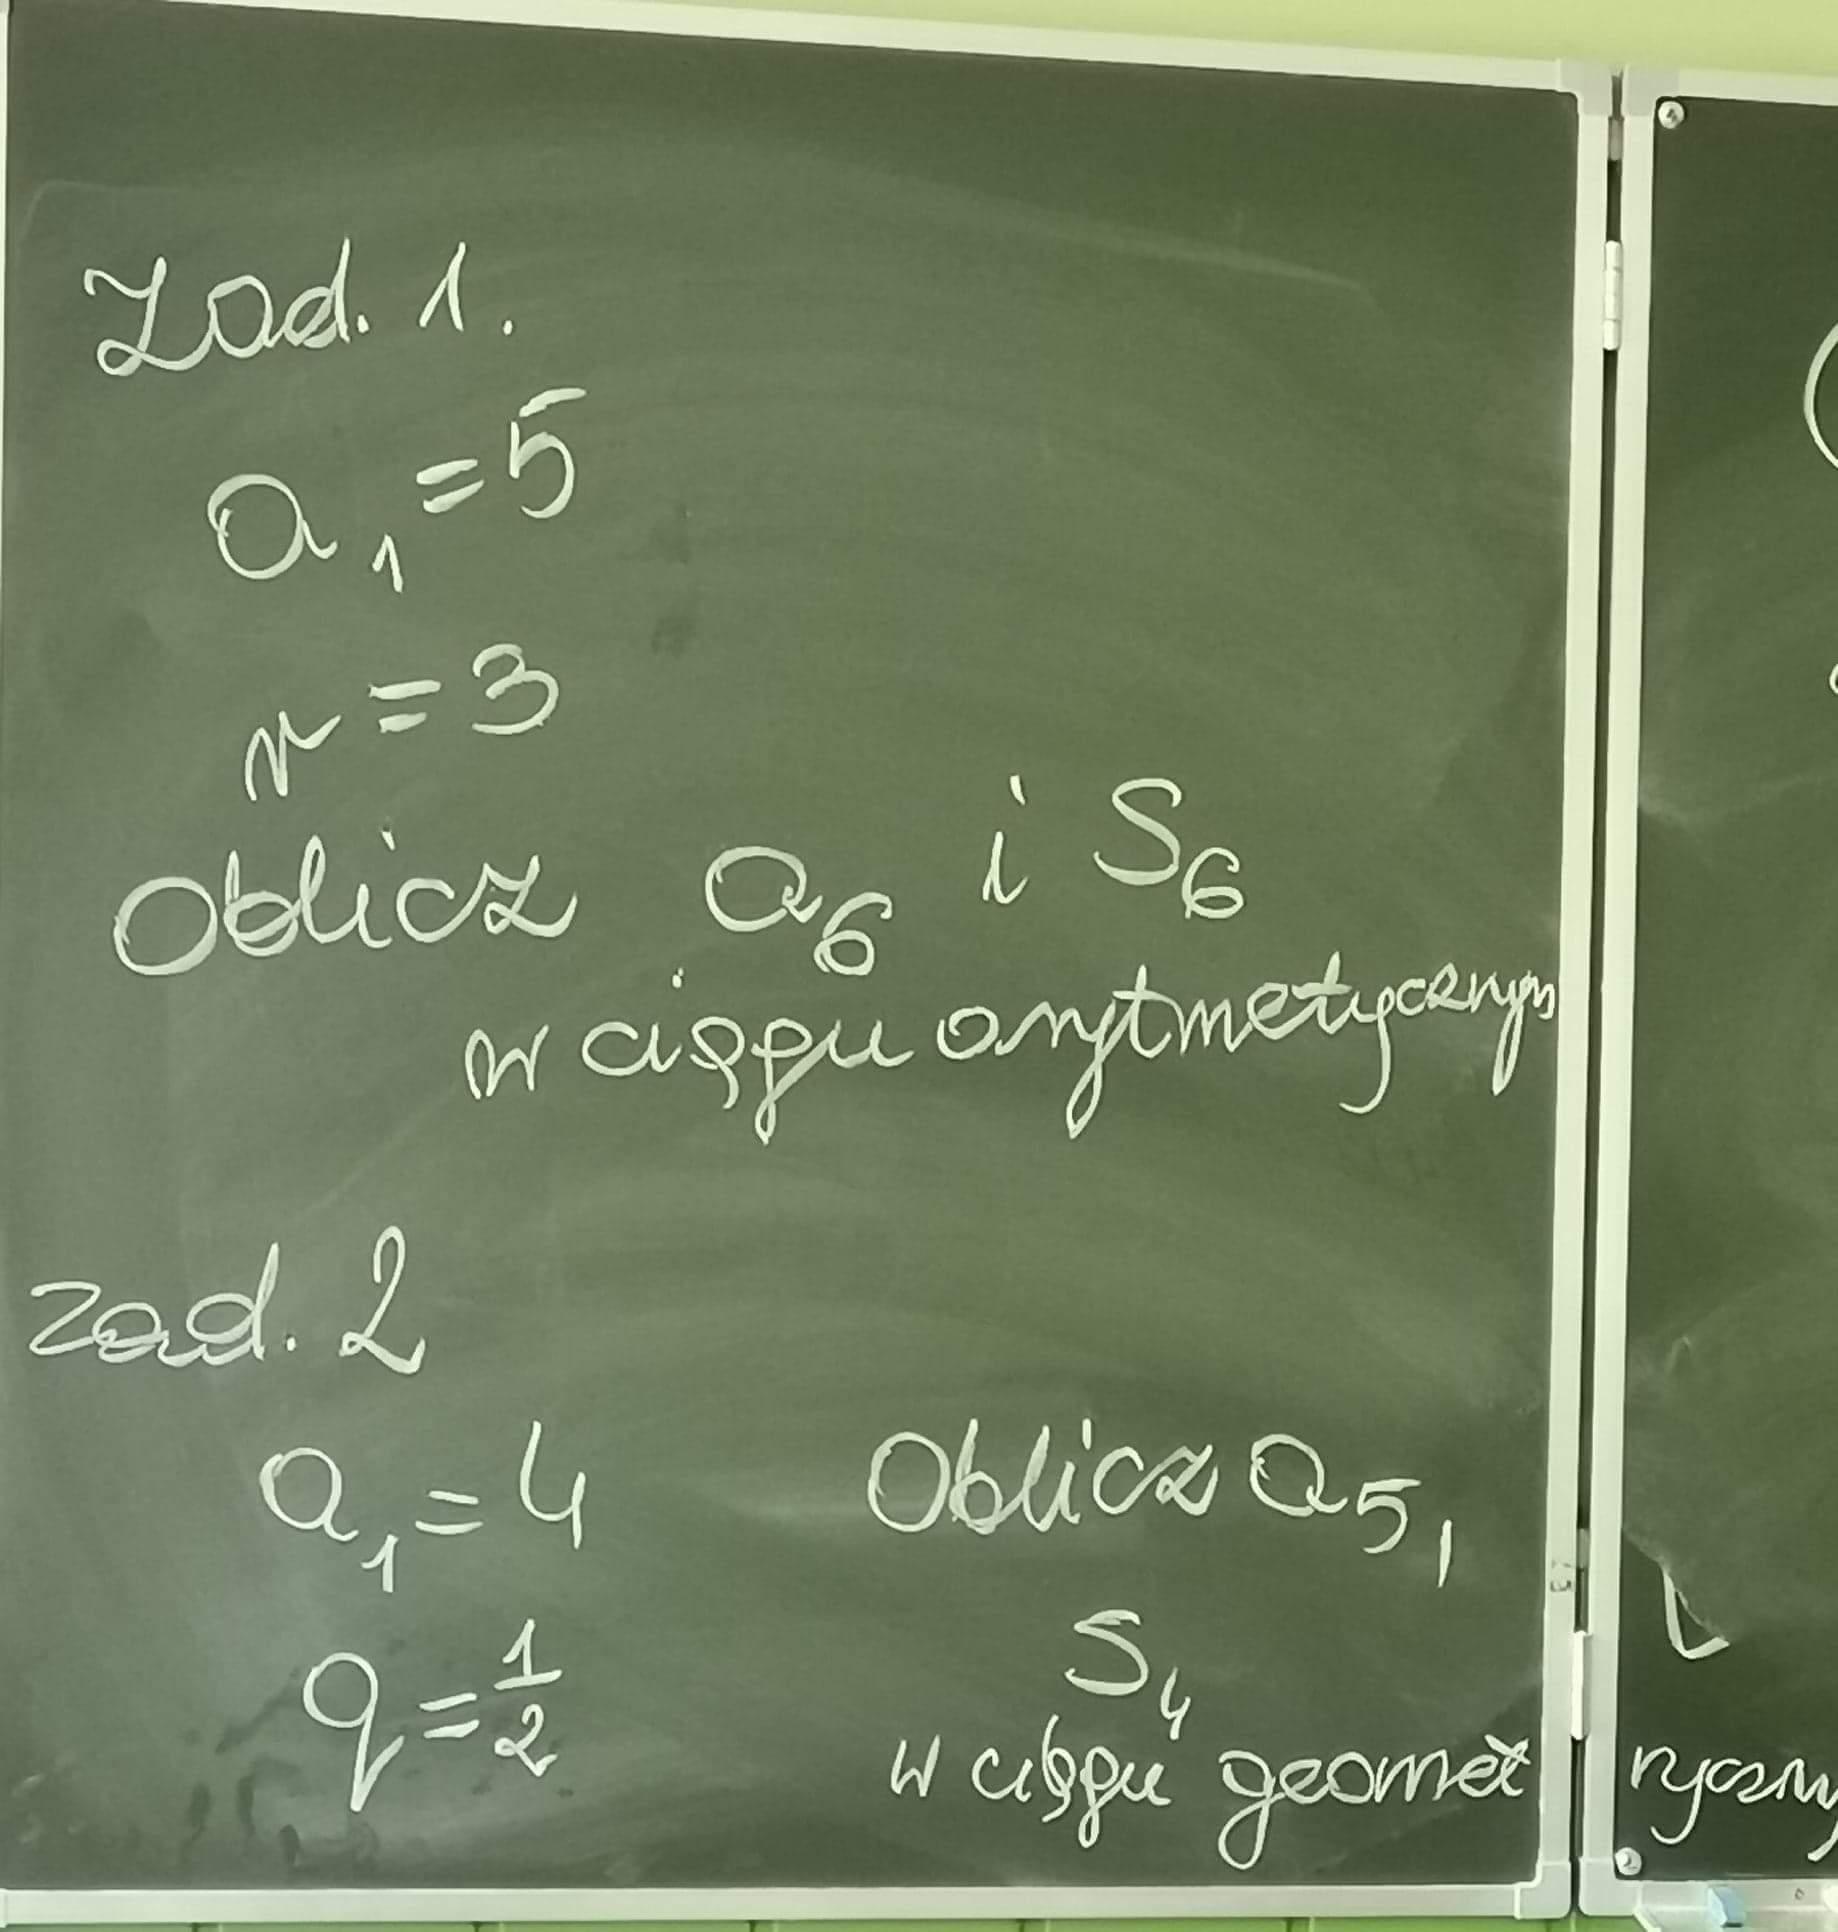 Zad. 1.
a₁ = 5
r = 3
Oblicz a₆ i S₆
w ciągu arytmetycznym
zad. 2
a₁ = 4 Oblicz a₅,
q = 1/2 S₄
w ciągu geomet ryczny